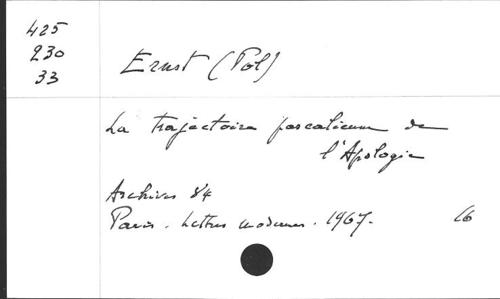 425
230
33
Ernst (Pol)
La trajectoire pascalienne de
l'Apologie
Archives 84
Paris. Lettres modernes. 1967. 16